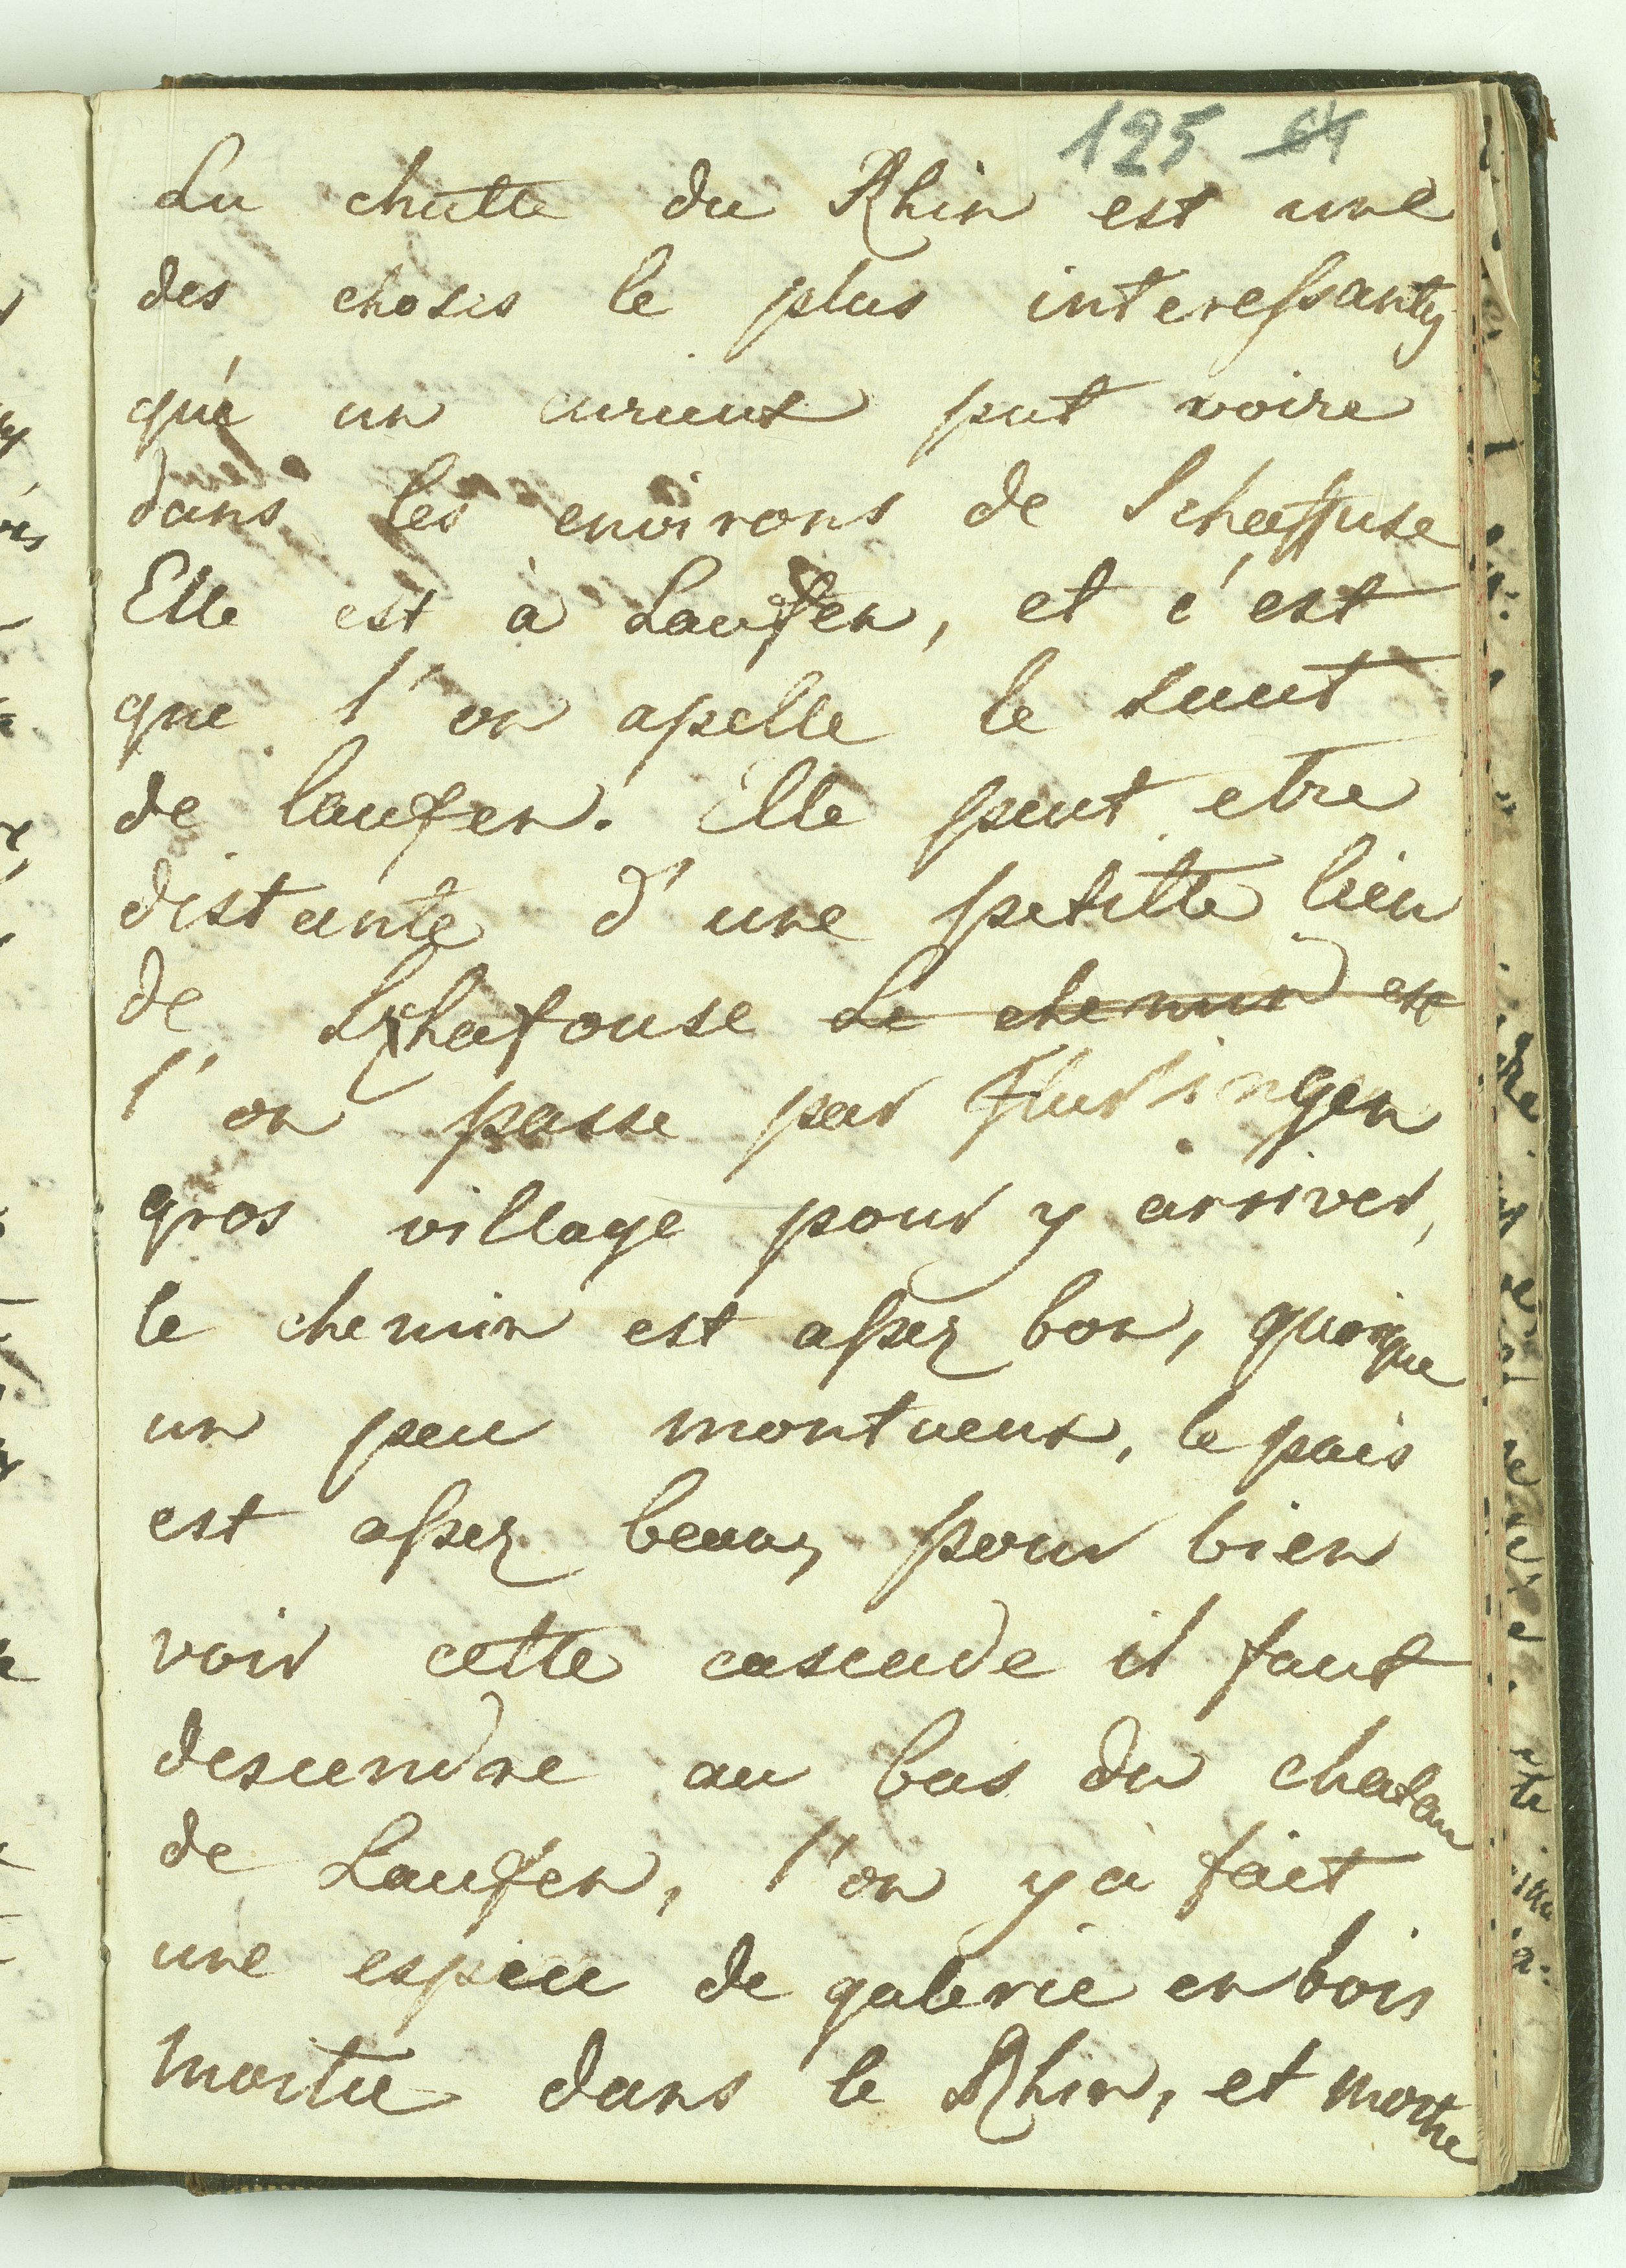 125 64
La chutte du Rhin est une
des choses le plus interessantes
que un curieux put voire
dans les environs de Schaffuse
Elle est à Lauffen, et c'est
que l'on apelle le saut
de laufen. Elle peut etre
distante d'une petitte lieu
de Schafouse Le chemin est
l'on passe par Flurlingen
gros village pour y arriver,
le chemin est assez bon, quoique
un peu montueux, le pais
est assez beau, pour bien
voir cette cascade il faut
descendre au bas du chatau
de Laufen, l'on y a fait
une espece de galerie en bois
moitie dans le Rhin, et moitie